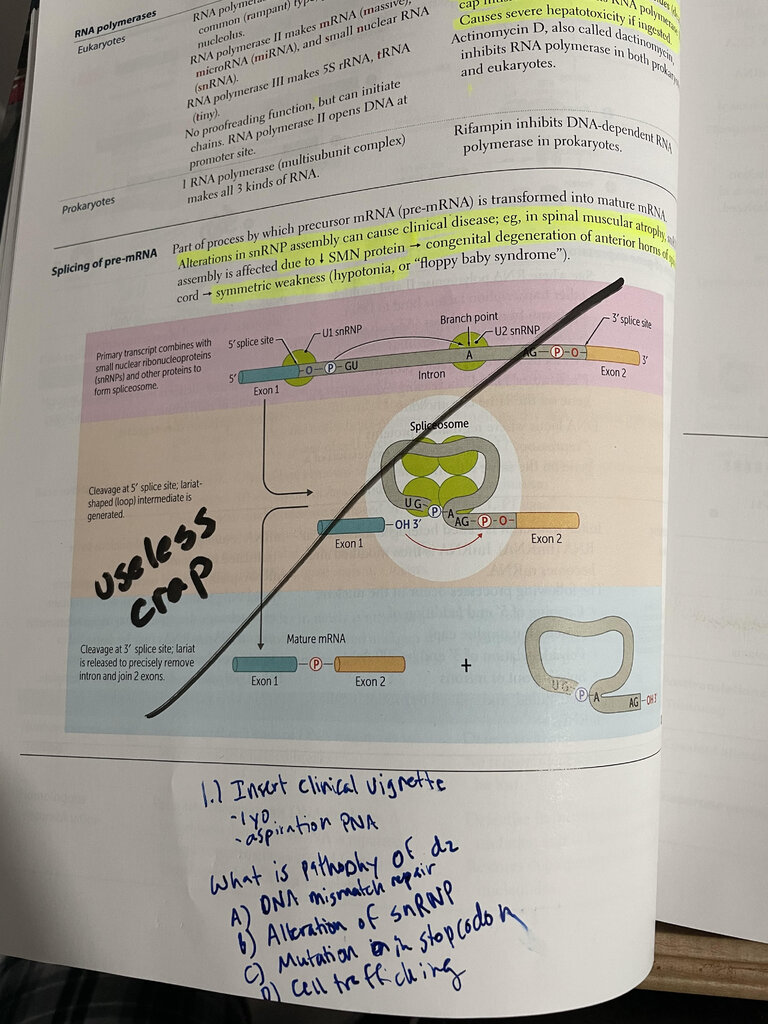 RNA polymerases
Eukaryotes
RNA polym
common (rampant) typ
nucleolus.
RNA polymerase II makes mRNA (massive),
microRNA (miRNA), and small nuclear RNA
(snRNA).
RNA polymerase III makes 5S rRNA, tRNA
(tiny).
No proofreading function, but can initiate
chains. RNA polymerase II opens DNA at
promoter site.
RNA polymera
Causes severe hepatotoxicity if ingested.
Actinomycin D, also called dactinomycin,
inhibits RNA polymerase in both prokary
and eukaryotes.
Prokaryotes
1 RNA polymerase (multisubunit complex)
makes all 3 kinds of RNA.
Rifampin inhibits DNA-dependent RNA
polymerase in prokaryotes.
Splicing of pre-mRNA
Part of process by which precursor mRNA (pre-mRNA) is transformed into mature mRNA.
Alterations in snRNP assembly can cause clinical disease; eg, in spinal muscular atrophy,
assembly is affected due to ↓ SMN protein → congenital degeneration of anterior horns of
cord → symmetric weakness (hypotonia, or “floppy baby syndrome”).
Primary transcript combines with
small nuclear ribonucleoproteins
(snRNPs) and other proteins to
form spliceosome.
5′ splice site
U1 snRNP
Branch point
U2 snRNP
3′ splice site
5′
O P GU
A
AG P O
3′
Exon 1
Intron
Exon 2
Cleavage at 5′ splice site; lariat-
shaped (loop) intermediate is
generated.
Spliceosome
UG P A
OH 3′
AG P O
Exon 1
Exon 2
useless
crap
Cleavage at 3′ splice site; lariat
is released to precisely remove
intron and join 2 exons.
Mature mRNA
P
Exon 1
Exon 2
+
UG P A
AG OH 3′
1.) Insert clinical vignette
- 1 yo
- aspiration PNA
What is pathophy of dz
A) DNA mismatch repair
B) Alteration of snRNP
C) Mutation in stop codon
D) Cell trafficking